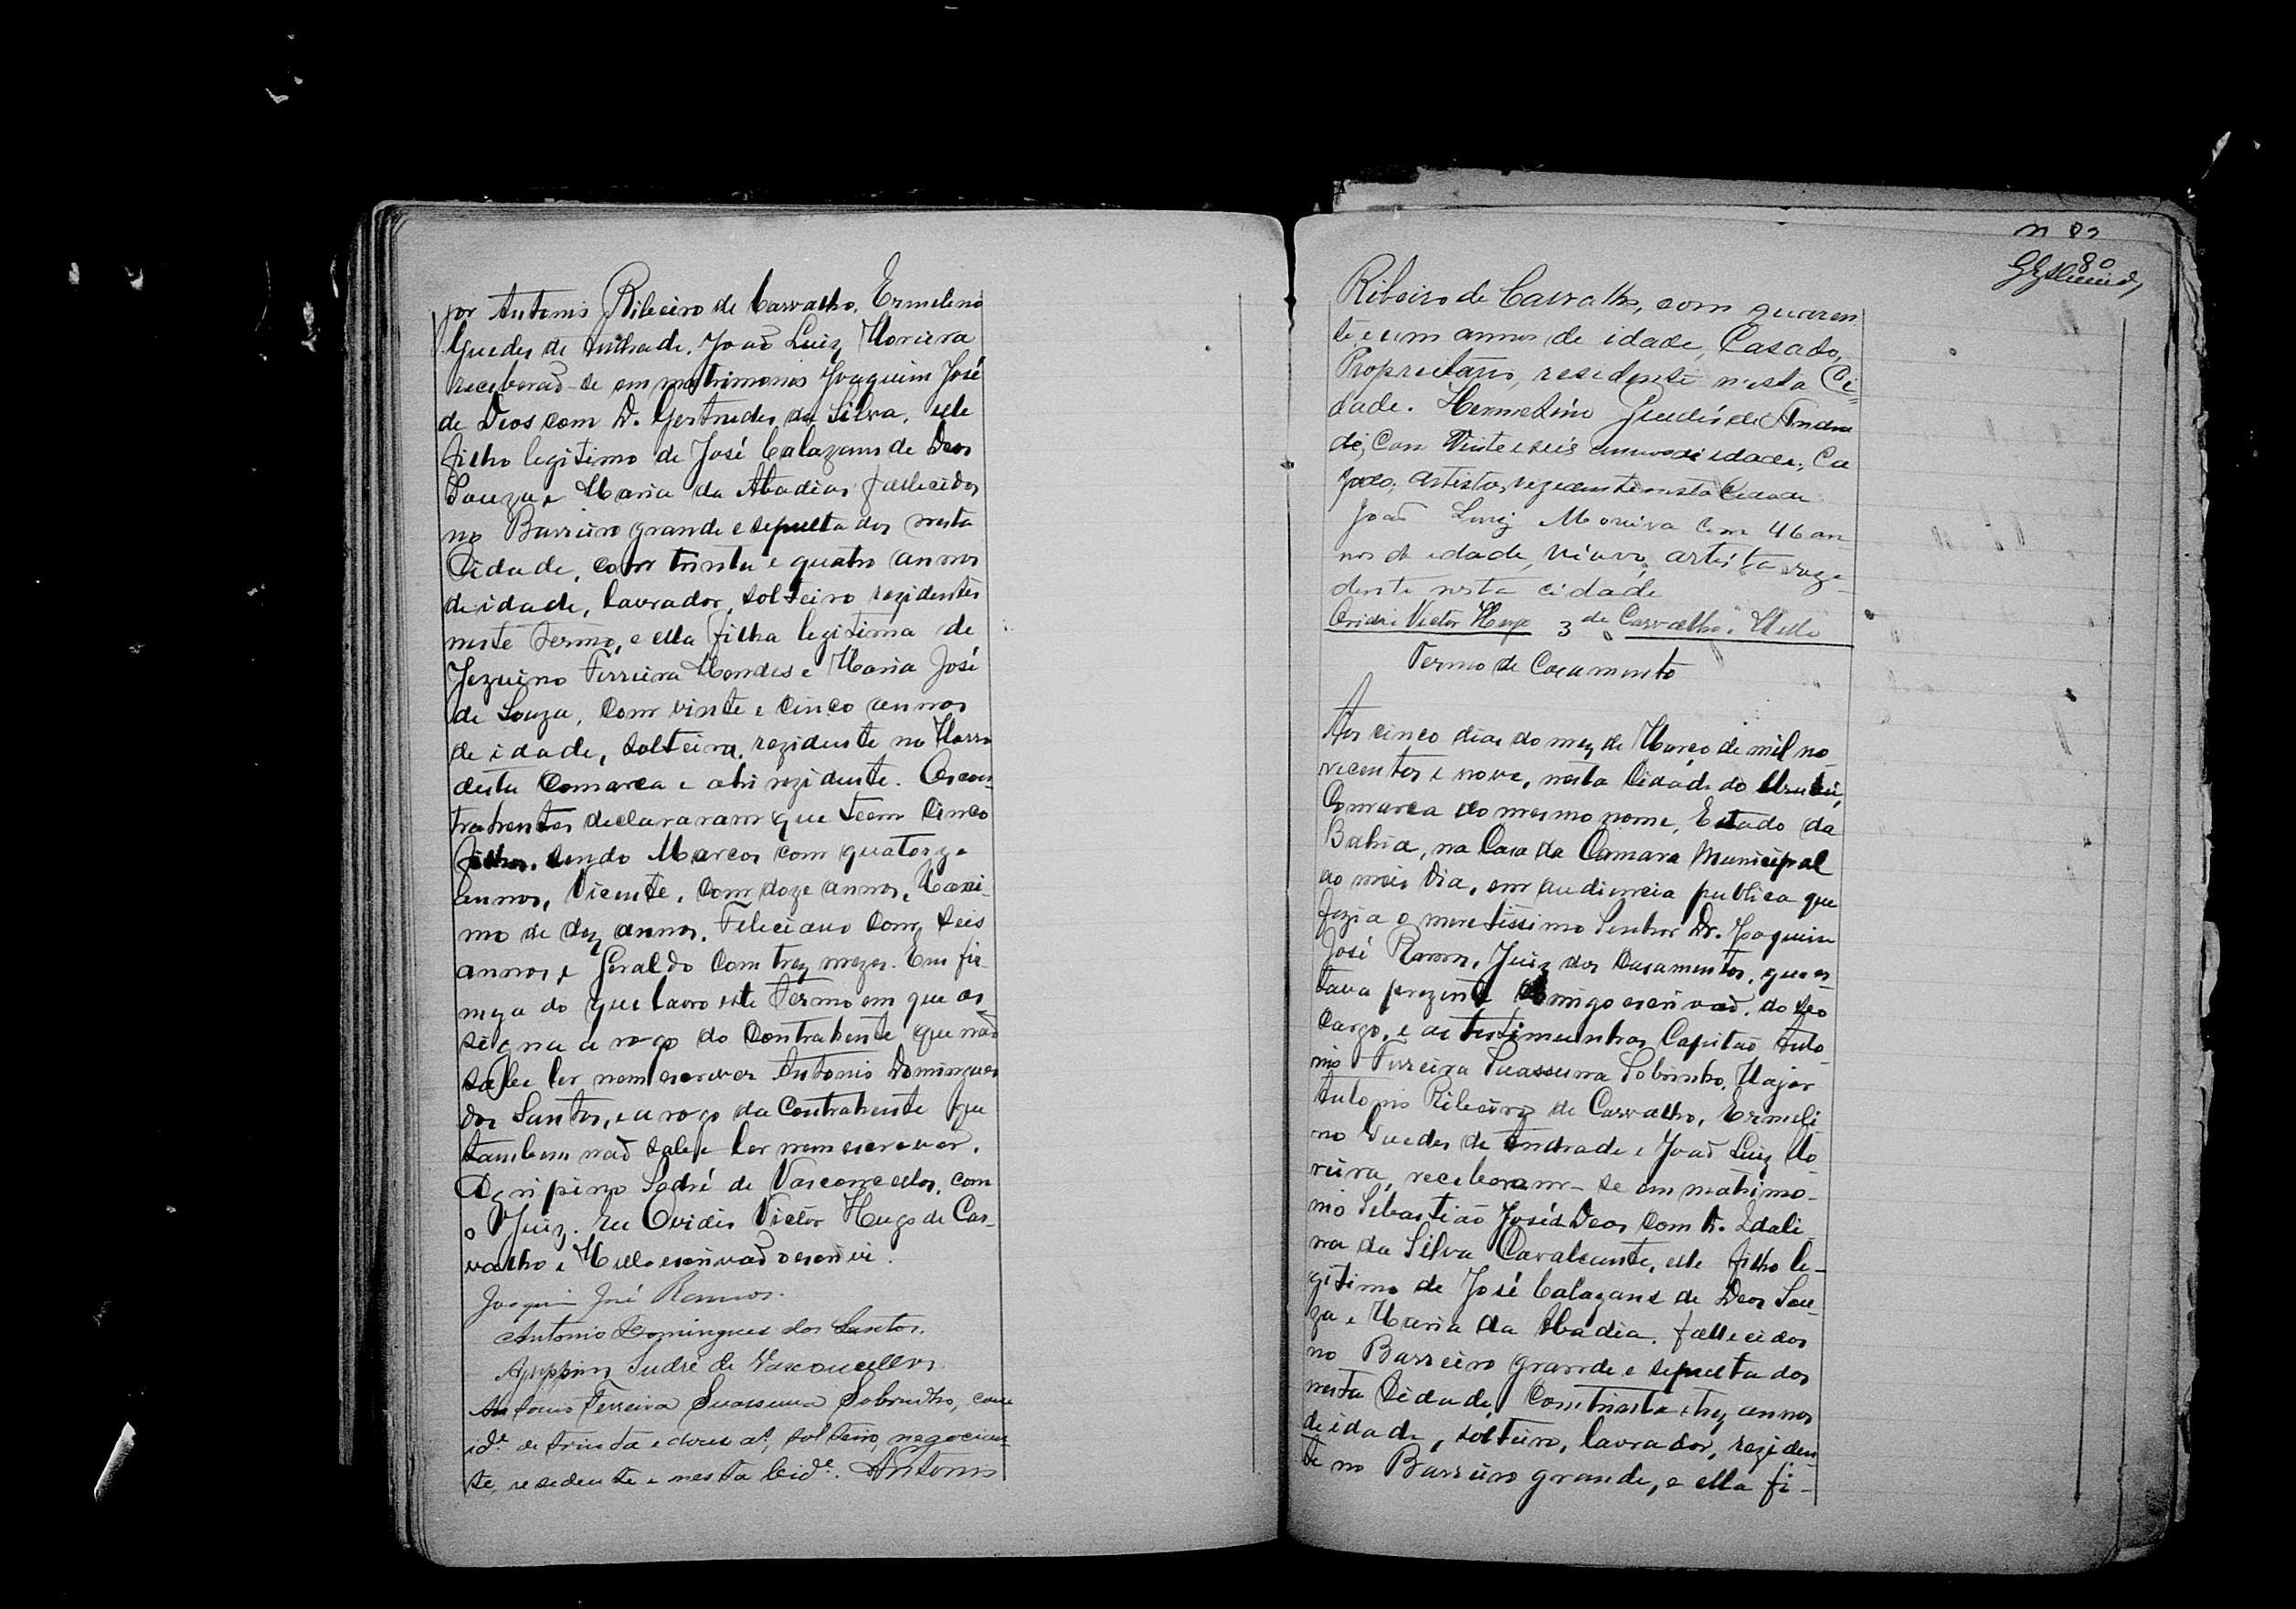 por Antonio Ribeiro de Carvalho, Ermelino
Guedes de Andrade, João Luiz Moreira
receberaõ-se em matrimonio Joaquim José
de Deos com D. Gertrudes da Silva, elle
filho legitimo de José Calazans de Deos
Souza e Maria da Abadia, fallecidos
no Barreiro grande e sepultados nesta
Cidade, com trinta e quatro annos
de idade, lavrador, solteiro rezidentes
neste termo, e ella filha legitima de
Jezuino Ferreira Mendes e Maria José
de Souza, com vinte e cinco annos
de idade, solteira, rezidente no Morro
desta Comarca e ahi rezidente. Os con-
trahentes declararam que teem cinco
filhos, sendo Marcos com quatorze
annos, Vicente, com doze annos, Maxi-
mo de dez annos, Feliciano com seis
annos e Geraldo com trez mezes. Em fir-
meza do que lavro este termo em que as
signa a rogo do Contrahente que naõ
sabe ler nem escrever Antonio Domingues
dos Santos, e a rogo da Contrahente que
tambem naõ sabe ler nem escrever,
Agripino Sodré de Vasconcellos, com
o Juiz. Eu Ovidio Victor Hugo de Car-
valho e Mello escrivaõ o escrevi.
Joaquim José Ramos.
Antonio Domingues dos Santos.
Agrippino Sudré de Vasconcellos
Antonio Ferreira Suassuna Sobrinho, com
id.e de trinta e dous a.s, solteiro, negocian-
te, residente nesta cid.e. Antonio
n 82
80
Ribeiro de Carvalho, com quaren
ta e um annos de idade, Casado,
Proprietario, residente nesta Ci=
dade. Hermelino Guedes de Andra
de, com Vinte e seis annos de idade, Ca
zado, artista, rezidente nesta Cidade
João Luiz Moreira com 46 an-
nos de idade, viuvo, artista reze-
dente nesta cidade
Ovidio Victor Hugo de Carvalho e Mello
Termo de Casamento
Aos cinco dias do mez de Março de mil no-
vecentos e nove, nesta Cidade do
Comarca do mesmo nome, Estado da
Bahia, na Casa da Camara Municipal
ao meio dia, em audiencia publica que
fazia o meretissimo Senhor Dr. Joaquim
José Ramos, Juiz dos Casamentos, que es-
tava prezente comigo escrivaõ do seo
Cargo, e as testimunhas Capitaõ Anto-
nio Ferreira Suassuna Sobrinho, Major
Antonio Ribeiro de Carvalho, Ermeli-
no Guedes de Andrade e Joaõ Luiz Mo-
reira, receberam-se em matrimo-
nio Sebastiaõ José de Deos com D. Idali-
na da Silva Cavalcante, elle filho le-
gitimo de José Calazans de Deos Sou-
za e Maria da Abadia, fallecidos
no Barreiro grande e sepultados
nesta Cidade, com trinta e trez annos
de idade, solteiro, lavrador, reziden
te no Barreiro grande, e ella fi-